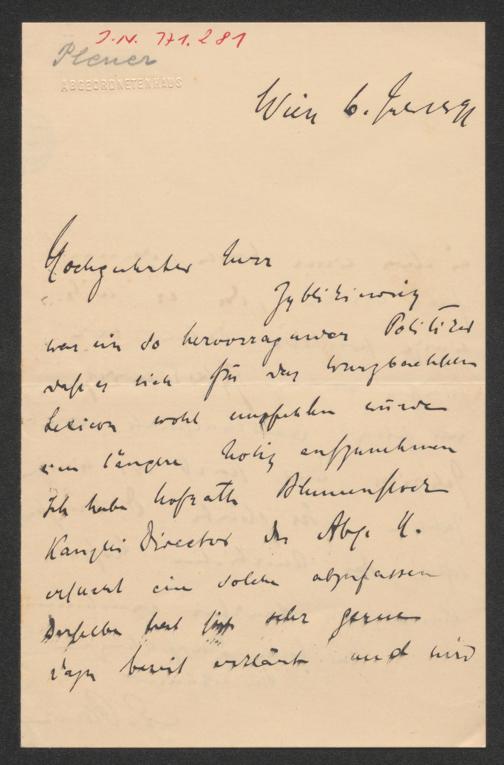 J.N. 171.281
Plener
ABGEORDNETENHAUS
Wien 6.
Hochgeehrter Herr
Zyblikiewicz
war ein so hervorragender Politiker
daß es sich für das Wurzbachsche
Lexicon wohl empfehlen würde
eine längere Notiz aufzunehmen
Ich habe Hofrath Blumenstock
Kanzlei Director des Abg. H.
ersucht eine solche abzufassen
Derselbe hat sich sehr gerne
dazu bereit erklärt und wird